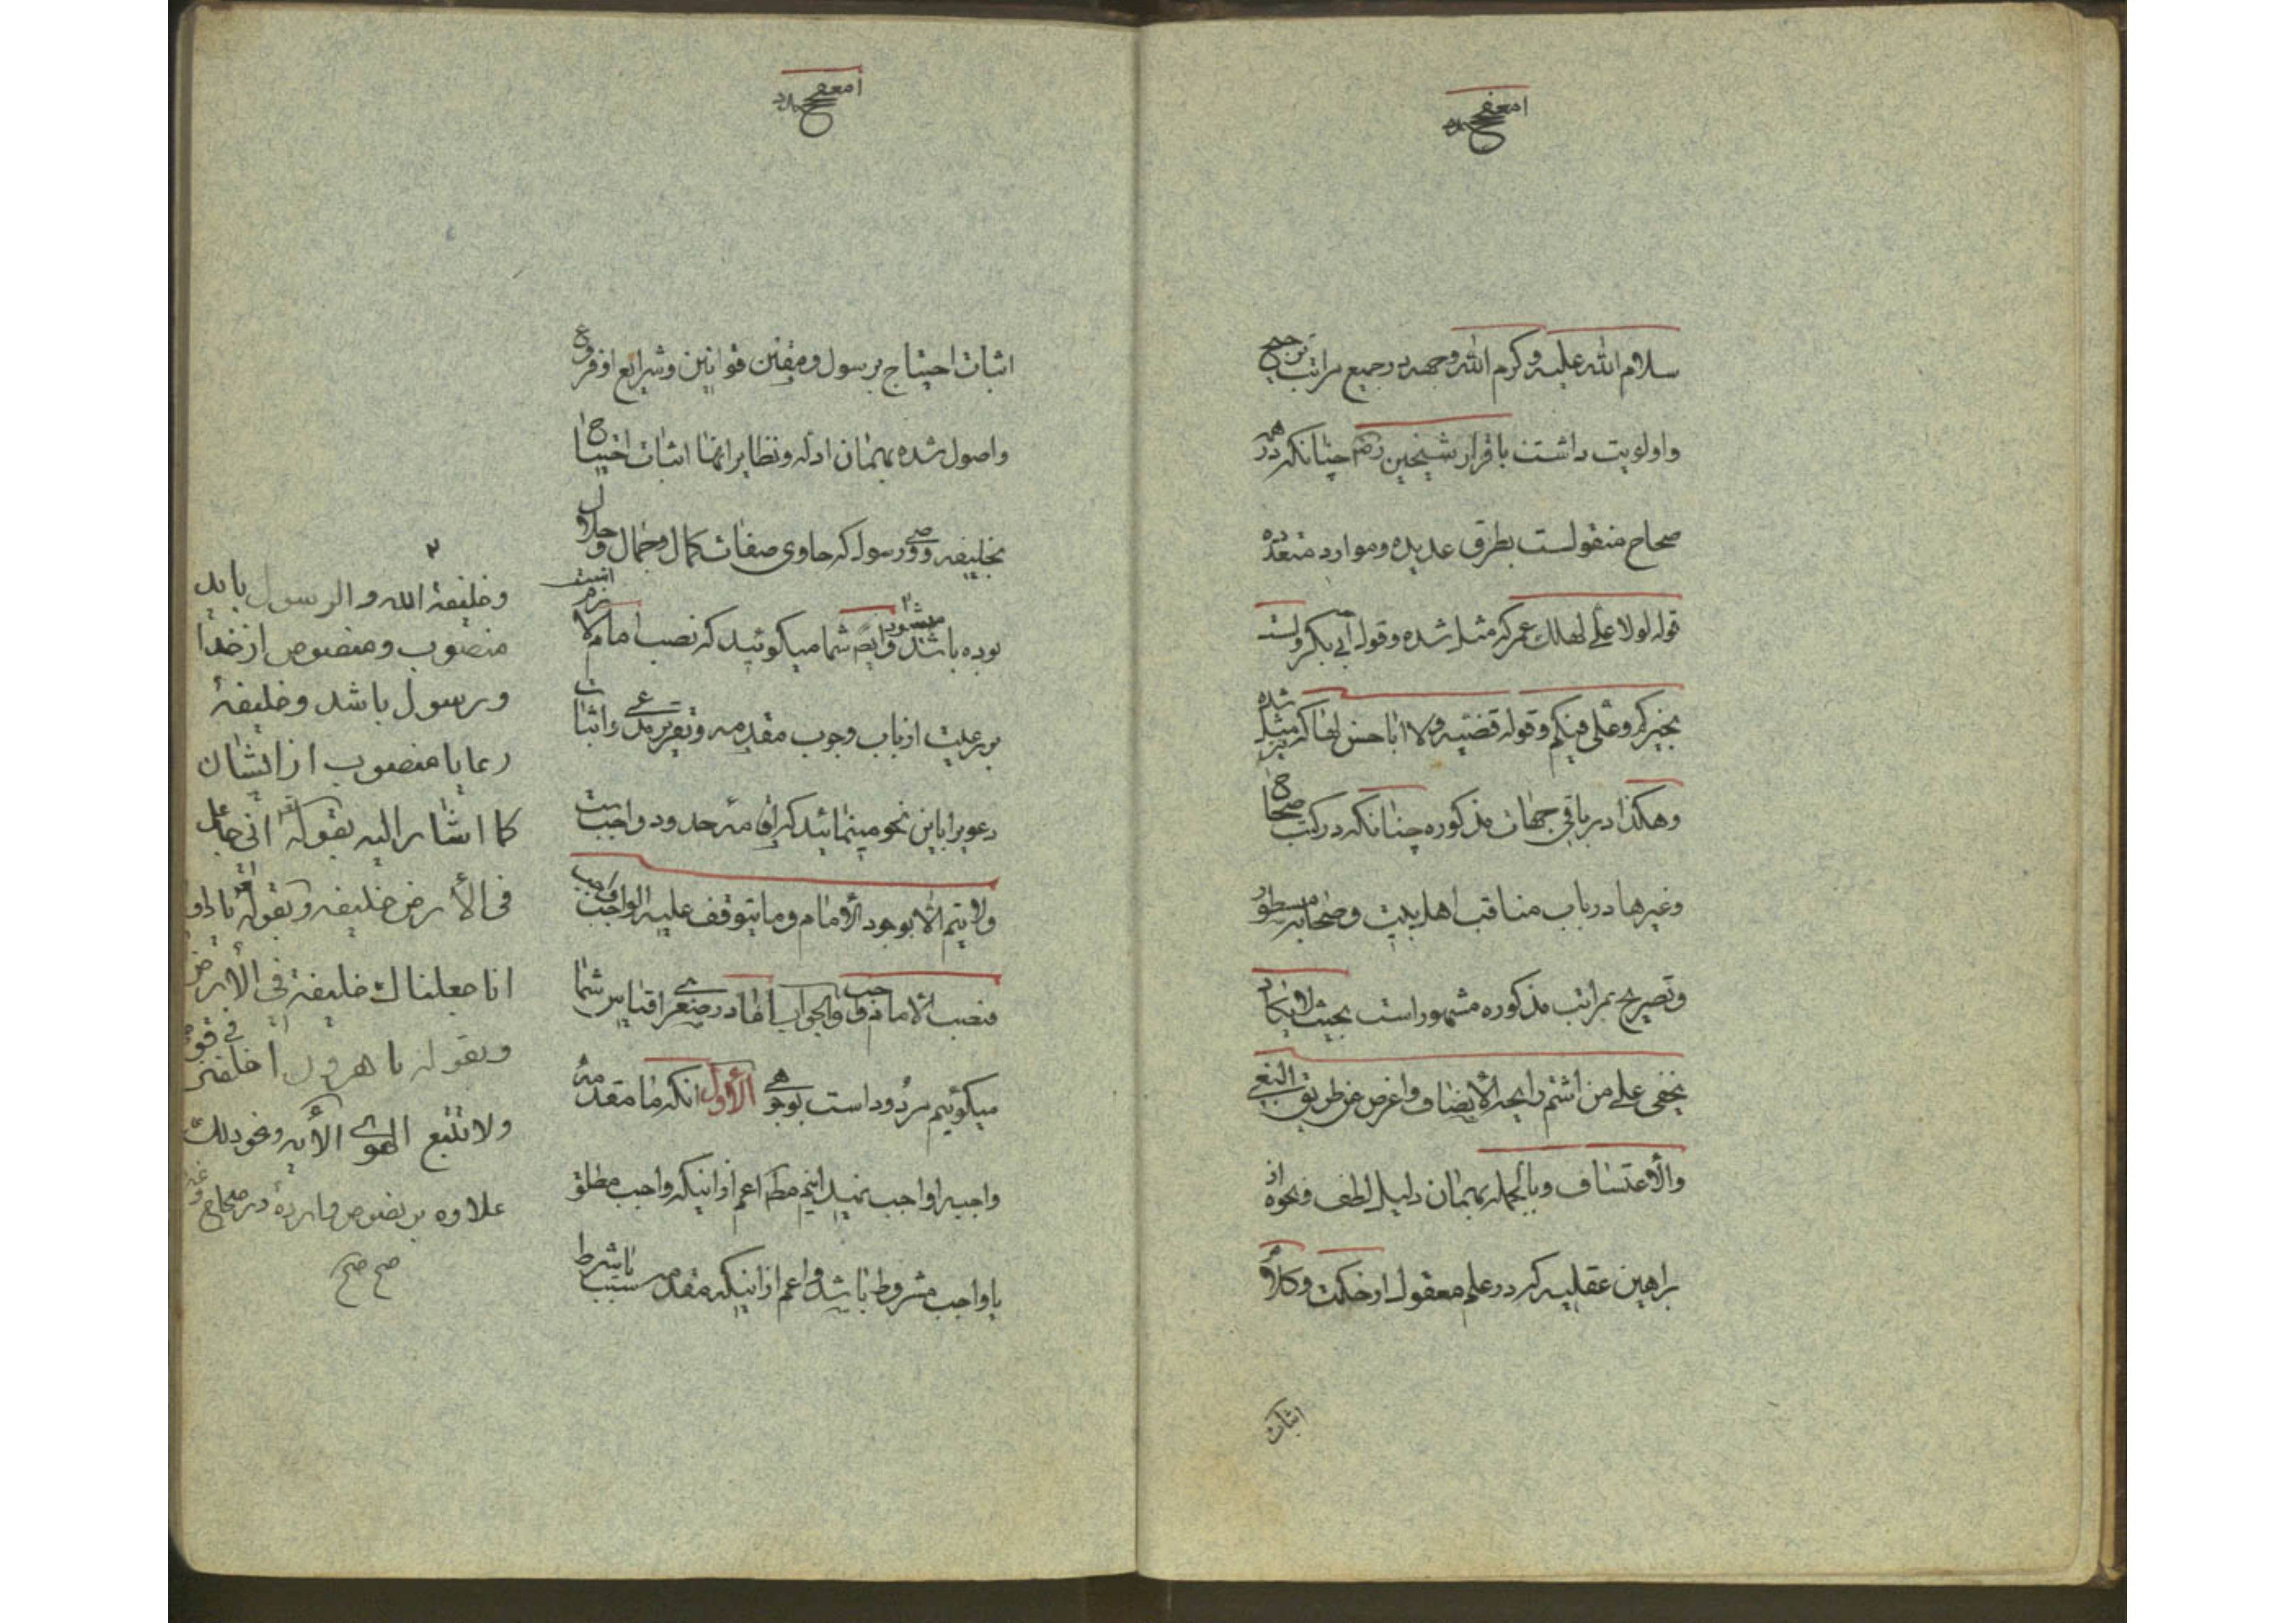 سلام الله علیه وکرم الله وجهه در جمیع مراتب ترجیح
واولویت داشت باقرار شیخین رضم چنانکه در همه
صحاح منقولست بطرق عدیده وموارد متعدده
قوله لولا علی لهلک عمر که مثل شده وقول ابی بکر ولست
بخیرکم وعلی فیکم وقوله قضیه ولا اباحسن لها که مثل شده
وهکذا در باقی جهات مذکوره چنانکه در کتب صحاح
وغیرها در باب مناقب اهل بیت وصحابه مسطور
وتصریح بمراتب مذکوره مشهور است بحیث لا یکاد
یخفی علی من اشتم رایحة الأنصاف واعرض عن طریق البغی
والأعتساف وبالجمله بهمان دلیل لطف ونحوه از
براهین عقلیه که در علم معقول از حکمت وکلام
اثبات
اثبات احتیاج برسول ومقنن قوانین وشرایع از فروع
واصول شده بهمان ادله ونظایر انها اثبات احتیاج
بخلیفه ووصی رسول که حاوی صفات کمال وجمال وجلال
بوده باشد میشود وایضا شما میکوئید که نصب امام لازم است
بر رعیت از باب وجوب مقدمه وتقریر مدعی واثبات
دعویرا باین نحو مینمائید که اقامه حدود واجب است
ولا یتم الّا بوجود الأمام وما یتوقف علیه الواجب واجب
فنصب الامام واجب والجواب اما در صغرای قیاس شما
میکوئیم مردود است بوجوهی الأول انکه ما مقدمه
واجبرا واجب نمیدانیم مطلقا اعم از اینکه واجب مطلق
یا واجب مشروط باشد واعم از اینکه مقدمه سبب یا شرط
۲
وخلیفة الله والرسول باید
منصوب ومنصوص از خدا
ورسول باشد وخلیفهٔ
رعایا منصوب از ایشان
کما اشار الیه بقوله انی جاعل
فی الأرض خلیفه وبقوله یا داود
انا جعلناک خلیفة فی الأرض
وبقوله یا هرون اخلفنی فی قومی
ولا تتبع الهوی الأیه ونحو ذلک
علاوه بر نصوص وارده در صحاح وغیره
صح صح